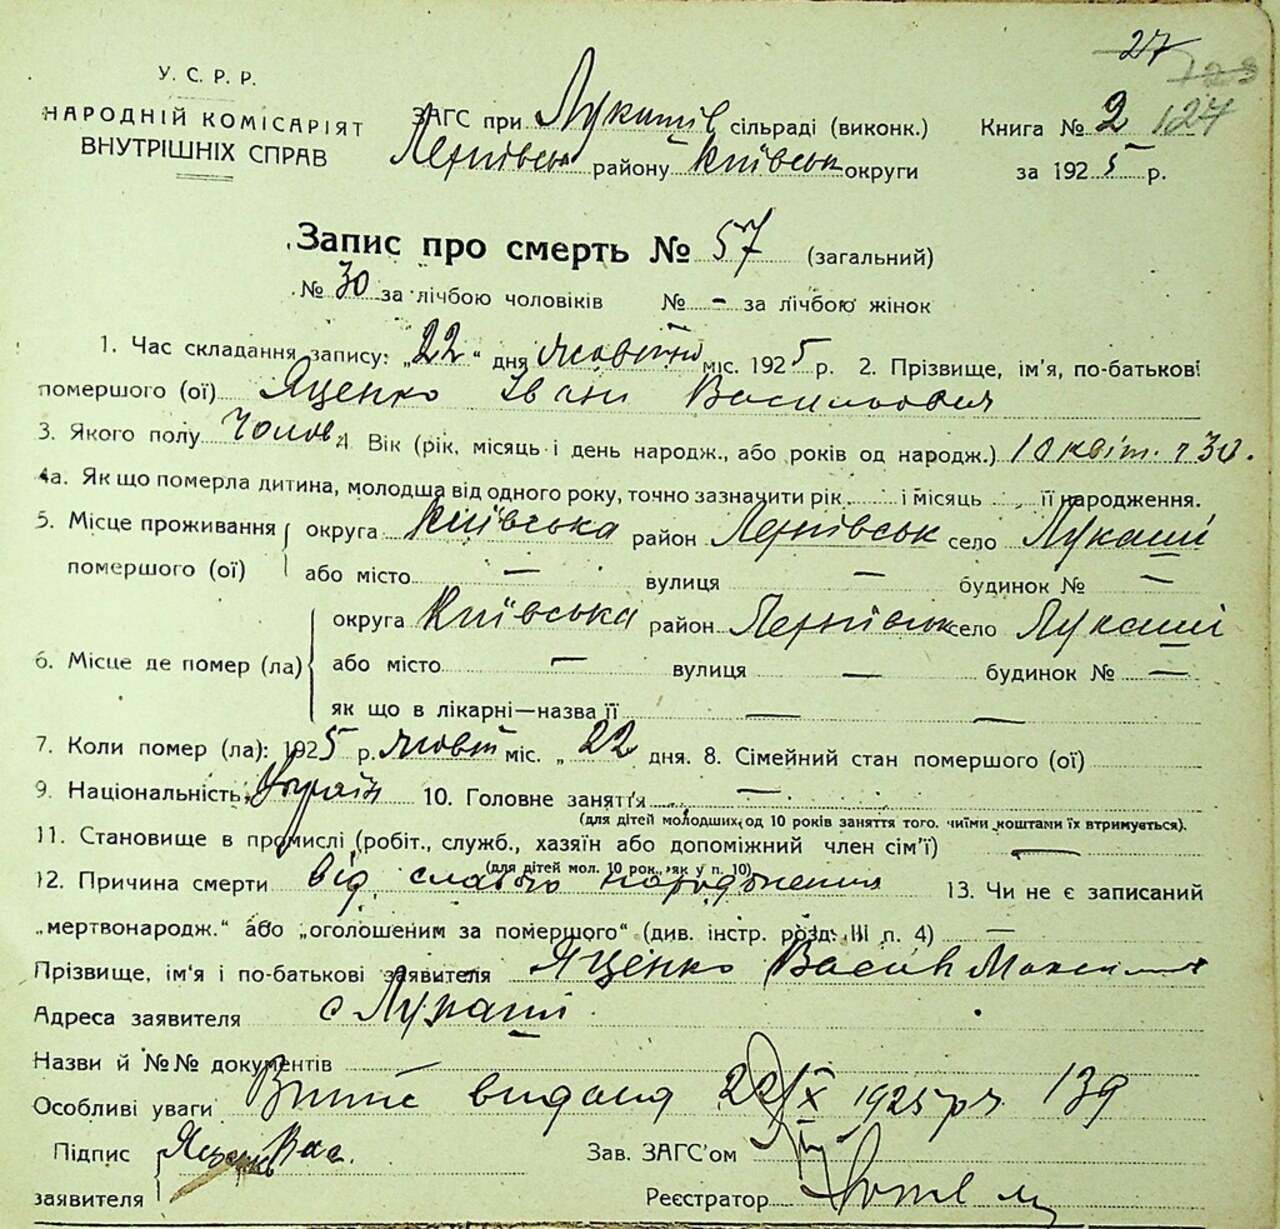 27
123
У. С. Р. Р.
НАРОДНІЙ КОМІСАРІЯТ
ВНУТРІШНІХ СПРАВ
ЗАГС при Лукашів сільраді (виконк.)
районy Київськ округи
Книга № 2 124
за 1925 р.
Запис про смерть № 57 (загальний)
№ 30 за лічбою чоловіків № - за лічбою жінок
1. Час складання запису: „22" дня жовтня міс. 1925 р. 2. Прізвище, ім'я, по-батькові
помершого (ої) Яценко Іван Васильович
3. Якого полу Чолов. 4 Вік (рік, місяць і день народж., або років од народж.) 10 квіт.
4а. Як що померла дитина, молодша від одного року, точно зазначити рік і місяць її народження.
5. Місце проживання округа Київська район село Лукаші
помершого (ої) або місто — вулиця — будинок № —
округа Київська район село Лукаші
6. Місце де помер (ла) або місто — вулиця — будинок № —
як що в лікарні—назва її — —
7. Коли помер (ла): 1925 р. жовт міс. „ 22 дня. 8. Сімейний стан помершого (ої)
9. Національність Украін 10. Головне заняття —
(для дітей молодших од 10 років заняття того. чиїми коштами їх втримується).
11. Становище в промислі (робіт., служб., хазяїн або допоміжний член сім'ї) —
(для дітей мол. 10 рок., як у п. 10)
12. Причина смерти від слабого народження 13. Чи не є записаний
„мертвонародж." або „оголошеним за помершого" (див. інстр. розд. III п. 4) —
Прізвище, ім'я і по-батькові заявителя Яценко Василь
Адреса заявителя с Лукаші
Назви й №№ документів
Особливі уваги видана 22/X 1925 р 139
Підпис Яценко Вас.
заявителя
Зав. ЗАГС'ом
Реєстратор